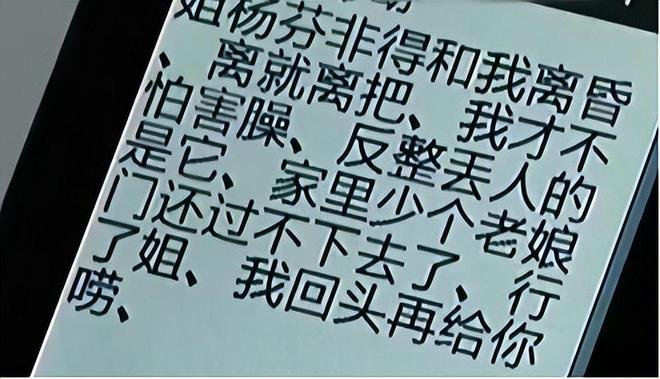 姐杨芬非得和我离昏
、离就离把、我才不
怕害臊、反整丢人的
是它、家里少个老娘
门还过不下去了、行
了姐、我回头再给你
唠、